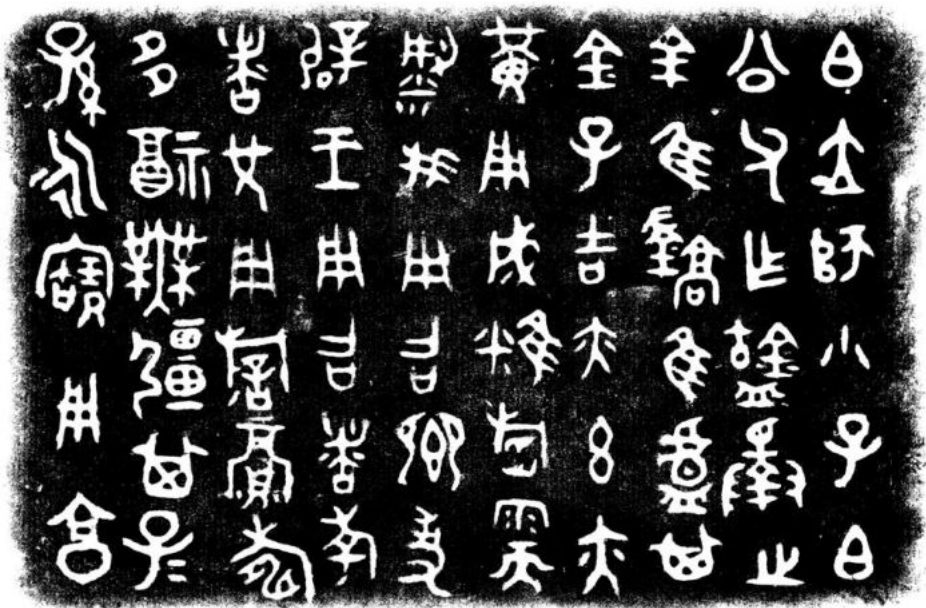 白大師小子白
公父乍𥂴擇之
金隹鐈隹盧其
金孔吉亦玄亦
黃用成糕稻需
粱我用召卿事
辟王用召者考
者兄用祈眉壽
多福無疆其子=
孫=永寶用享